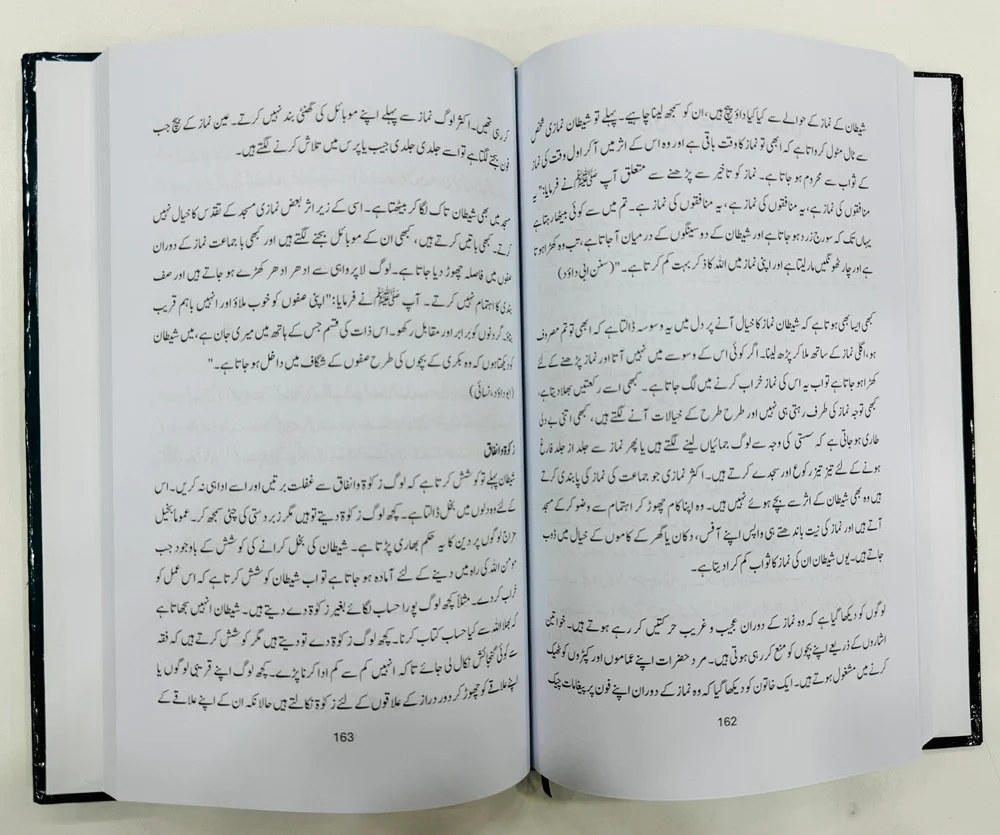 شیطان کے نماز کے حوالے سے کیا کیا داؤ پیچ ہیں، ان کو سمجھ لینا چاہیے۔ پہلے تو شیطان نمازی شخص
سے ٹال مٹول کرواتا ہے کہ ابھی تو نماز کا وقت باقی ہے اور وہ اس کے اثر میں آ کر اول وقت کی نماز
کے ثواب سے محروم ہو جاتا ہے۔ نماز کو تاخیر سے پڑھنے سے متعلق آپ ﷺ نے فرمایا: "یہ
منافقوں کی نماز ہے، یہ منافقوں کی نماز ہے، یہ منافقوں کی نماز ہے۔ تم میں سے کوئی بیٹھا رہتا ہے
یہاں تک کہ سورج زرد ہو جاتا ہے اور شیطان کے دو سینگوں کے درمیان آ جاتا ہے، تب وہ کھڑا ہوتا
ہے اور چار ٹھونگیں مار لیتا ہے اور اپنی نماز میں اللہ کا ذکر بہت کم کرتا ہے۔" (سنن ابی داؤد)
کبھی ایسا بھی ہوتا ہے کہ شیطان نماز کا خیال آنے پر دل میں یہ وسوسہ ڈالتا ہے کہ ابھی تو تم مصروف
ہو، اگلی نماز کے ساتھ ملا کر پڑھ لینا۔ اگر کوئی اس کے وسوسے میں نہیں آتا اور نماز پڑھنے کے لئے
کھڑا ہو جاتا ہے تو اب یہ اس کی نماز خراب کرنے میں لگ جاتا ہے۔ کبھی اسے رکعتیں بھلا دیتا ہے،
کبھی توجہ نماز کی طرف رہتی ہی نہیں اور طرح طرح کے خیالات آنے لگتے ہیں، کبھی اتنی بے دلی
طاری ہو جاتی ہے کہ سستی کی وجہ سے لوگ جمائیاں لینے لگتے ہیں یا پھر نماز سے جلد از جلد فارغ
ہونے کے لئے تیز تیز رکوع اور سجدے کرتے ہیں۔ اکثر نمازی جو جماعت کی نماز کی پابندی کرتے
ہیں وہ بھی شیطان کے اثر سے بچے ہوئے نہیں ہیں۔ وہ اپنا کام چھوڑ کر اہتمام سے وضو کر کے مسجد
آتے ہیں اور نماز کی نیت باندھتے ہی واپس اپنے آفس، دکان یا گھر کے کاموں کے خیال میں ڈوب
جاتے ہیں۔ یوں شیطان ان کی نماز کا ثواب کم کرا دیتا ہے۔
لوگوں کو دیکھا گیا ہے کہ وہ نماز کے دوران عجیب و غریب حرکتیں کر رہے ہوتے ہیں۔ خواتین
اشاروں کے ذریعے اپنے بچوں کو منع کر رہی ہوتی ہیں۔ مرد حضرات اپنے عماموں اور کپڑوں کو ٹھیک
کرنے میں مشغول ہوتے ہیں۔ ایک خاتون کو دیکھا گیا کہ وہ نماز کے دوران اپنے فون پر پیغامات چیک
162
کر رہی تھیں۔ اکثر لوگ نماز سے پہلے اپنے موبائل کی گھنٹی بند نہیں کرتے۔ عین نماز کے بیچ جب
فون بجنے لگتا ہے تو اسے جلدی جلدی جیب یا پرس میں تلاش کرنے لگتے ہیں۔
مسجد میں بھی شیطان تاک لگا کر بیٹھتا ہے۔ اسی کے زیر اثر بعض نمازی مسجد کے تقدس کا خیال نہیں
کرتے۔ کبھی باتیں کرتے ہیں، کبھی ان کے موبائل بجنے لگتے ہیں اور کبھی با جماعت نماز کے دوران
صفوں میں فاصلہ چھوڑ دیا جاتا ہے۔ لوگ لا پرواہی سے ادھر ادھر کھڑے ہو جاتے ہیں اور صف
بندی کا اہتمام نہیں کرتے۔ آپ ﷺ نے فرمایا: "اپنی صفوں کو خوب ملاؤ اور انہیں باہم قریب
گردنوں کو برابر اور مقابل رکھو۔ اس ذات کی قسم جس کے ہاتھ میں میری جان ہے، میں شیطان
کو دیکھتا ہوں کہ وہ بکری کے بچوں کی طرح صفوں کے شگاف میں داخل ہو جاتا ہے۔"
(ابو داؤد، نسائی)
زکوۃ و انفاق
شیطان پہلے تو کوشش کرتا ہے کہ لوگ زکوٰۃ و انفاق سے غفلت برتیں اور اسے ادا ہی نہ کریں۔ اس
کے لئے وہ دلوں میں بخل ڈالتا ہے۔ کچھ لوگ زکوٰۃ دیتے تو ہیں مگر زبردستی کی چٹی سمجھ کر۔ عموما بخیل
مزاج لوگوں پر دین کا یہ حکم بھاری پڑتا ہے۔ شیطان کی بخل کرانے کی کوشش کے باوجود جب
مومن اللہ کی راہ میں دینے کے لئے آمادہ ہو جاتا ہے تو اب شیطان کوشش کرتا ہے کہ اس عمل کو
خراب کر دے۔ مثلاً کچھ لوگ پورا حساب لگائے بغیر زکوٰۃ دے دیتے ہیں۔ شیطان انہیں سجھاتا ہے
کہ بھلا اللہ سے کیا حساب کتاب کرنا۔ کچھ لوگ زکوٰۃ دے تو دیتے ہیں مگر کوشش کرتے ہیں کہ فقہ
سے کوئی گنجائش نکال لی جائے تاکہ انہیں کم سے کم ادا کرنا پڑے۔ کچھ لوگ اپنے قریبی لوگوں یا
اپنے علاقے کو چھوڑ کر دور دراز کے علاقوں کے لئے زکوٰۃ نکالتے ہیں حالانکہ ان کے اپنے علاقے کے
163